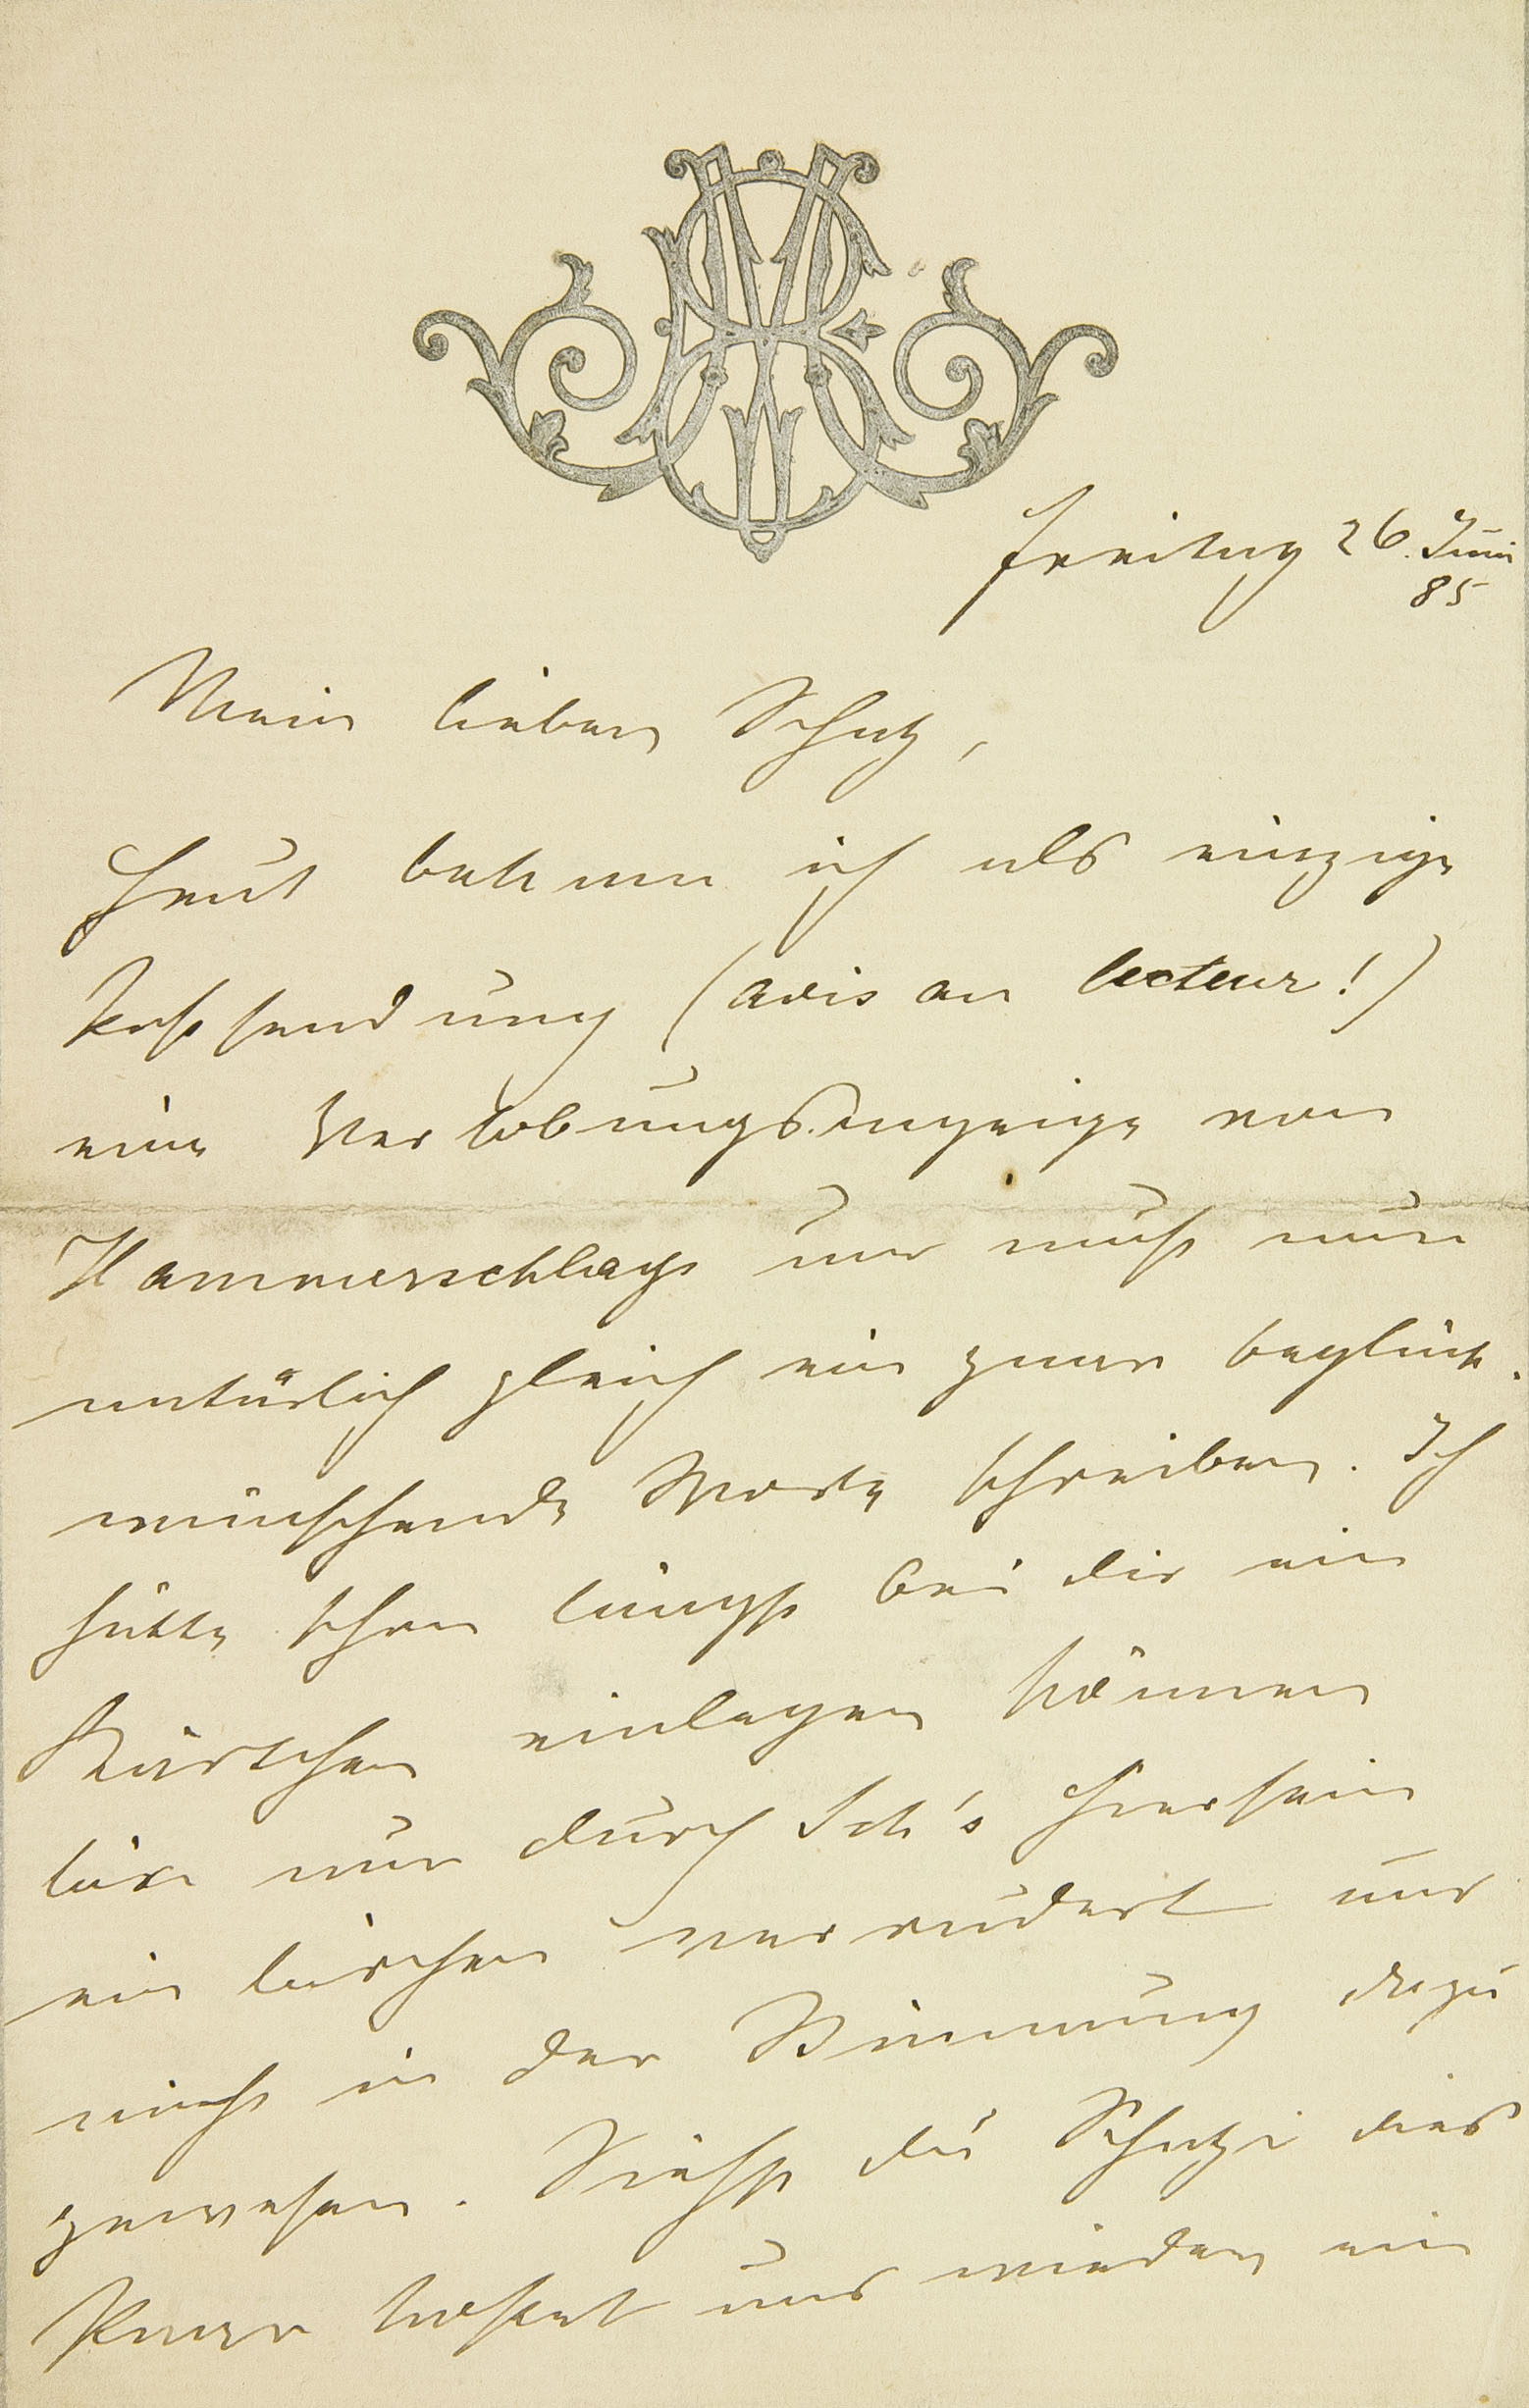 Freitag 26. Juni
85
Mein lieber Schatz,
Heut bekam ich als einzige
Postsendung (avis au lecteur!)
eine Verlobungsanzeige von
Hammerschlags und muß nun
natürlich gleich ein paar beglück-
wünschende Worte schreiben. Ich
hätte schon längst bei dir ein
Kärtchen einlegen können
bin nur durch Sch's Hiersein
ein bischen verrudert und
nicht in der Stimmung dazu
gewesen. Siehst du Schatzi dies
Paar kostet uns wieder ein